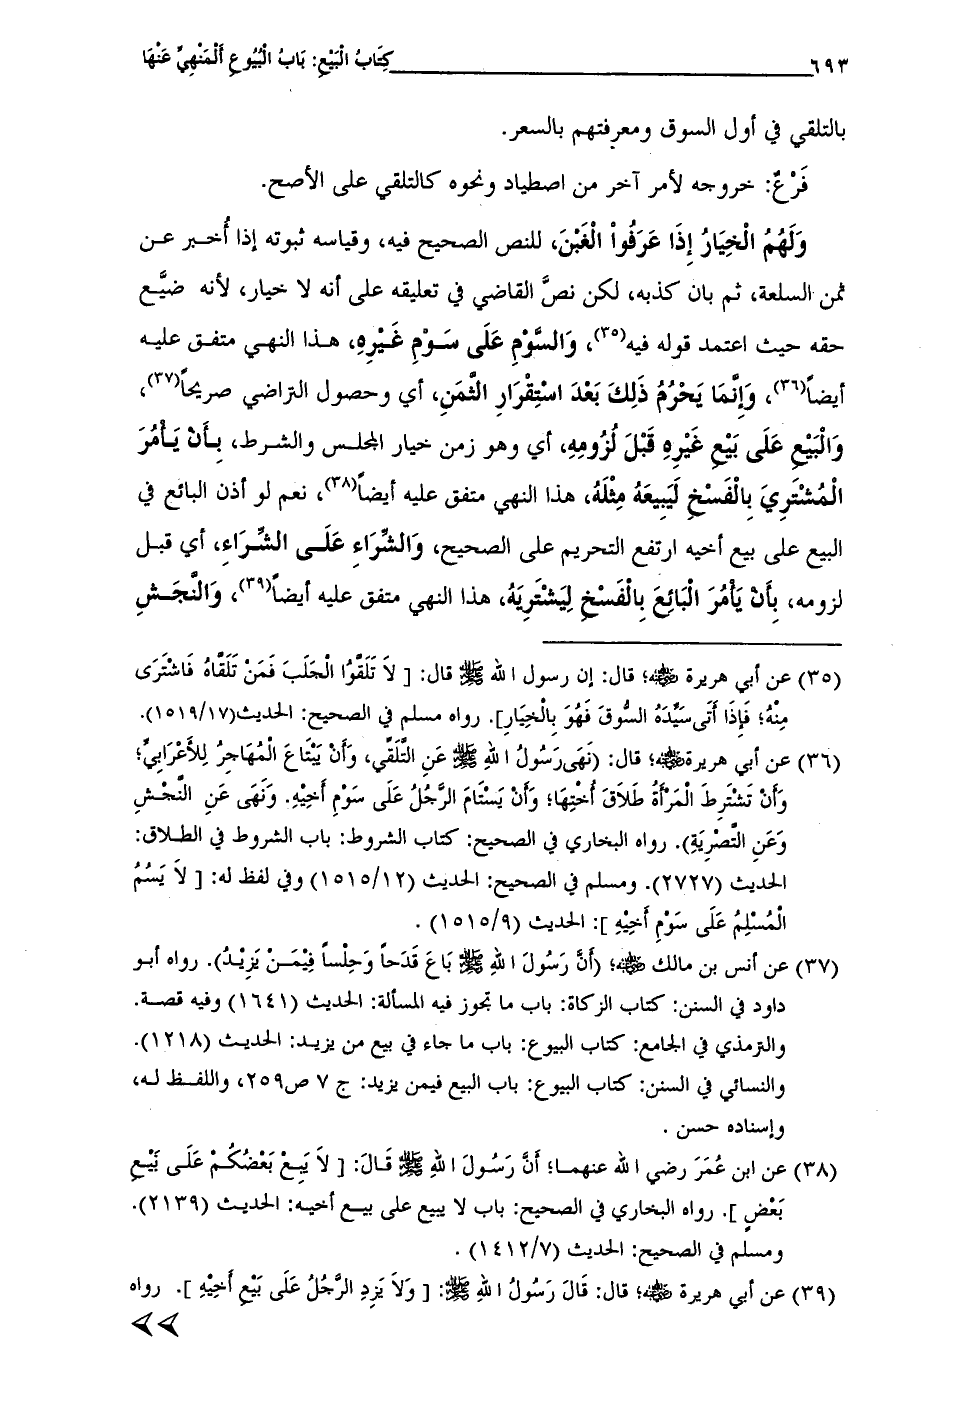 ٦٩٣ كِتَابُ الْبَيْعِ: بَابُ الْبُيُوعِ أَلْمَنْهِيِّ عَنْهَا
بالتلقي في أول السوق ومعرفتهم بالسعر.
فَرْعٌ: خروجه لأمر آخر من اصطياد ونحوه كالتلقي على الأصح.
وَلَهُمُ الْخِيَارُ إِذَا عَرَفُواْ الْغَبْنَ، للنص الصحيح فيه، وقياسه ثبوته إذا أُخبر عن
ثمن السلعة، ثم بان كذبه، لكن نصَّ القاضي في تعليقه على أنه لا خيار، لأنه ضيَّع
حقه حيث اعتمد قوله فيه(٣٥)، وَالسَّوْمِ عَلَى سَوْمِ غَيْرِهِ، هذا النهي متفق عليه
أيضاً(٣٦)، وَإِنَّمَا يَحْرُمُ ذَلِكَ بَعْدَ اسْتِقْرَارِ الثَّمَنِ، أي وحصول التراضي صريحاً(٣٧)،
وَالْبَيْعِ عَلَى بَيْعِ غَيْرِهِ قَبْلَ لُزُومِهِ، أي وهو زمن خيار المجلس والشرط، بِأَنْ يَأْمُرَ
الْمُشْتَرِيَ بِالْفَسْخِ لَيَبِيعَهُ مِثْلَهُ، هذا النهي متفق عليه أيضاً(٣٨)، نعم لو أذن البائع في
البيع على بيع أخيه ارتفع التحريم على الصحيح، وَالشِّرَاءِ عَلَى الشِّرَاءِ، أي قبل
لزومه، بِأَنْ يَأْمُرَ الْبَائِعَ بِالْفَسْخِ لِيَشْتَرِيَهُ، هذا النهي متفق عليه أيضاً(٣٩)، وَالنَّجَشِ
(٣٥) عن أبي هريرة ﷺ؛ قال: إن رسول الله ﷺ قال: [ لاَ تَلَقَّوُا الْجَلَبَ فَمَنْ تَلَقَّاهُ فَاشْتَرَى
مِنْهُ؛ فَإِذَا أَتَى سَيِّدَهُ السُّوقَ فَهُوَ بِالْخِيَارِ]. رواه مسلم في الصحيح: الحديث(١٥١٩/١٧).
(٣٦) عن أبي هريرة؛ قال: (نَهَى رَسُولُ اللهِ ﷺ عَنِ التَّلَقِّي، وَأَنْ يَبْتَاعَ الْمُهَاجِرُ لِلأَعْرَابِيِّ؛
وَأَنْ تَشْتَرِطَ الْمَرْأَةُ طَلاَقَ أُخْتِهَا؛ وَأَنْ يَسْتَامَ الرَّجُلُ عَلَى سَوْمِ أَخِيْهِ. وَنَهَى عَنِ النَّجْشِ
وَعَنِ التَّصْرِيَةِ). رواه البخاري في الصحيح: كتاب الشروط: باب الشروط في الطلاق:
الحديث (٢٧٢٧). ومسلم في الصحيح: الحديث (١٥١٥/١٢) وفي لفظ له: [ لاَ يَسُمُ
الْمُسْلِمُ عَلَى سَوْمِ أَخِيْهِ ]: الحديث (١٥١٥/٩) .
(٣٧) عن أنس بن مالك؛ (أَنَّ رَسُولَ اللهِ ﷺ بَاعَ قَدَحاً وَحِلْساً فِيْمَنْ يَزِيْدُ). رواه أبو
داود في السنن: كتاب الزكاة: باب ما تجوز فيه المسألة: الحديث (١٦٤١) وفيه قصة.
والترمذي في الجامع: كتاب البيوع: باب ما جاء في بيع من يزيد: الحديث (١٢١٨).
والنسائي في السنن: كتاب البيوع: باب البيع فيمن يزيد: ج ٧ ص٢٥٩، واللفظ له،
وإسناده حسن .
(٣٨) عن ابن عُمَرَ رضي الله عنهما؛ أَنَّ رَسُولَ اللهِ ﷺ قَالَ: [ لاَ يَبِعْ بَعْضُكُمْ عَلَى بَيْعِ
بَعْضٍ ]. رواه البخاري في الصحيح: باب لا يبيع على بيع أخيه: الحديث (٢١٣٩).
ومسلم في الصحيح: الحديث (١٤١٢/٧) .
(٣٩) عن أبي هريرة؛ قال: قَالَ رَسُولُ اللهِ ﷺ: [ وَلاَ يَزِدِ الرَّجُلُ عَلَى بَيْعِ أَخِيْهِ ]. رواه